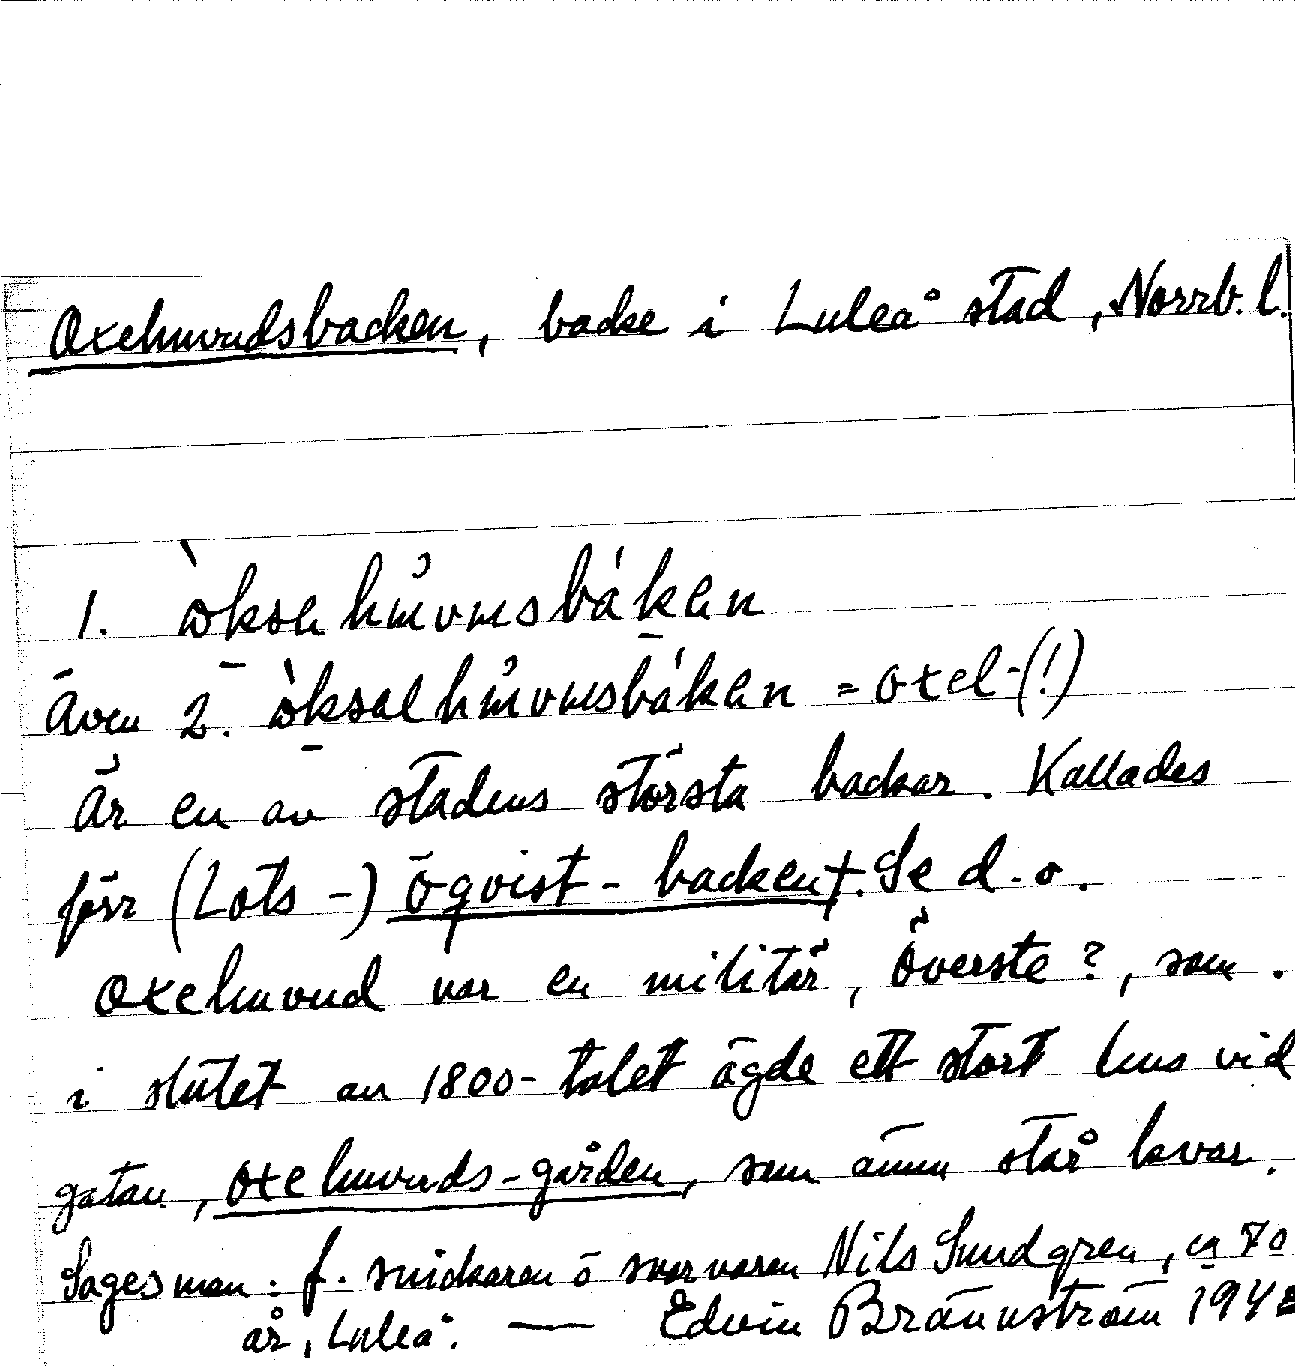 Oxehuvudsbacken, backe i Luleå stad, Norrb. l.
1. òksehu̇vusbáken
Även 2. òkselhu̇vusbáken = oxel-(!)
Är en av stadens största backar. Kallades
förr (Lots-) öqvist-backen†. Se d.o.
Oxehuvud var en militär, överste?, som
i slutet av 1800-talet ägde ett stort hus vid
gatan, oxehuvuds-gården, som ännu står kvar.
Sagesman: f. snickaren o svarvaren Nils Sundgren, ca 70
år, Luleå. — Edvin Brännström